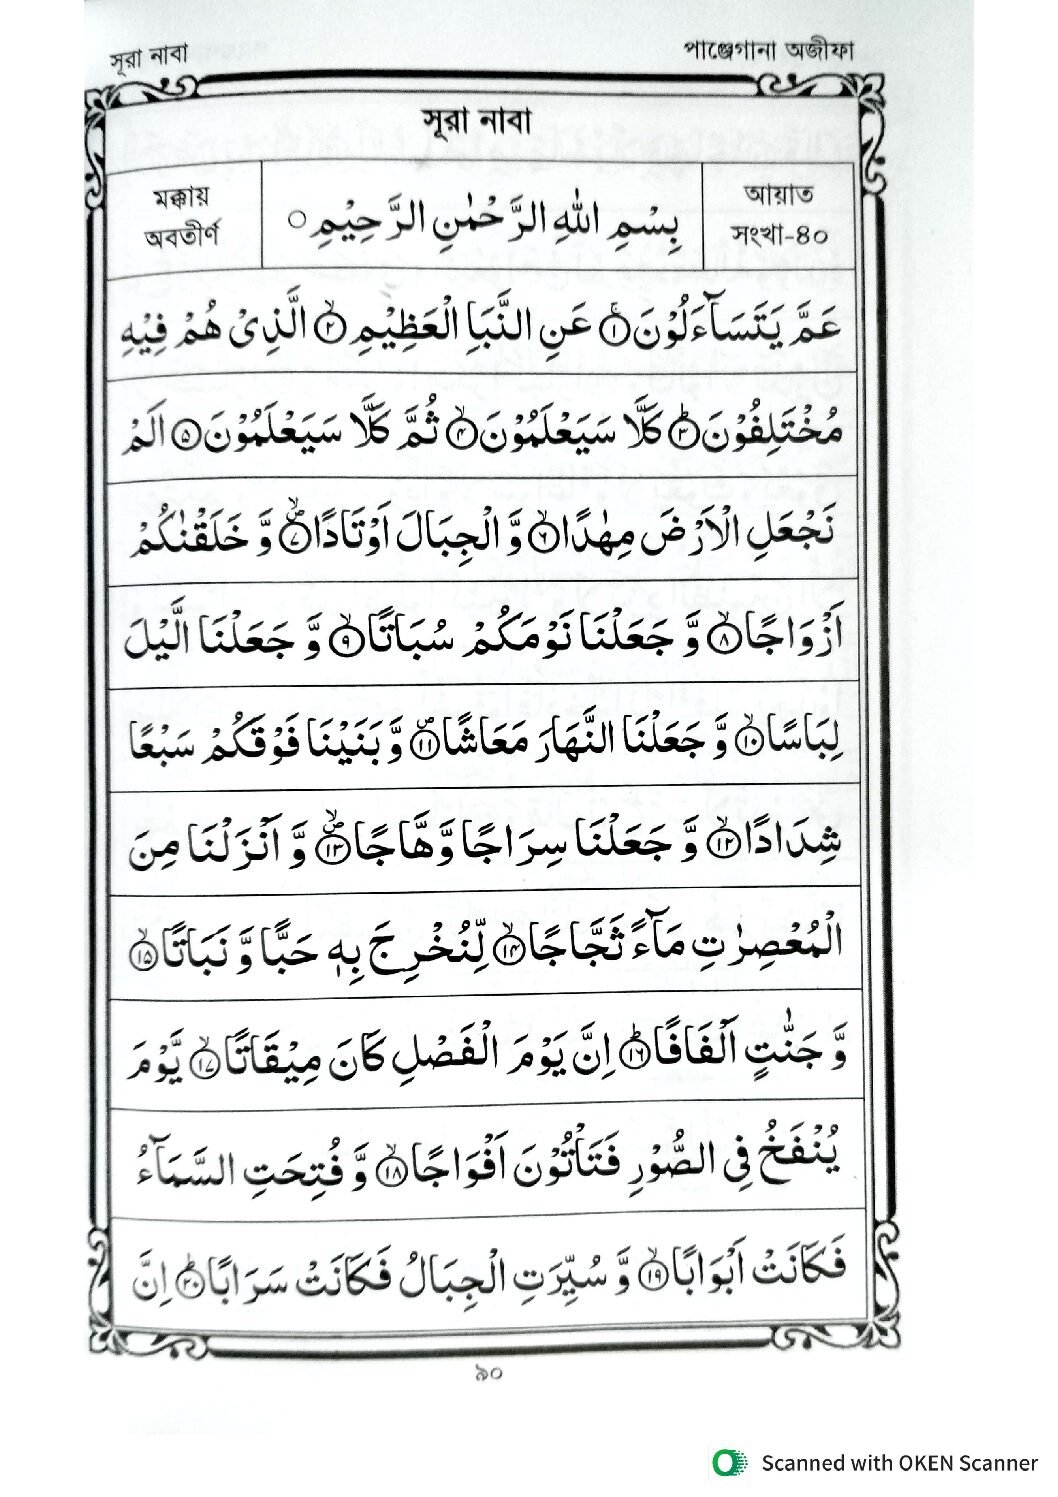 সূরা নাবা
পাঞ্জেগানা অজীফা
সূরা নাবা
মক্কায়
অবতীর্ণ
بِسْمِ اللّٰهِ الرَّحْمٰنِ الرَّحِيْمِ ○
আয়াত
সংখা-৪০
عَمَّ يَتَسَآءَلُوْنَ ۚ﴿۱﴾ عَنِ النَّبَاِ الْعَظِيْمِ ۙ﴿۲﴾ الَّذِيْ هُمْ فِيْهِ
مُخْتَلِفُوْنَ ؕ﴿۳﴾ كَلَّا سَيَعْلَمُوْنَ ۙ﴿۴﴾ ثُمَّ كَلَّا سَيَعْلَمُوْنَ ﴿۵﴾ اَلَمْ
نَجْعَلِ الْاَرْضَ مِهٰدًا ۙ﴿۶﴾ وَّ الْجِبَالَ اَوْتَادًا ۪ۙ﴿۷﴾ وَّ خَلَقْنٰكُمْ
اَزْوَاجًا ۙ﴿۸﴾ وَّ جَعَلْنَا نَوْمَكُمْ سُبَاتًا ۙ﴿۹﴾ وَّ جَعَلْنَا الَّيْلَ
لِبَاسًا ۙ﴿۱۰﴾ وَّ جَعَلْنَا النَّهَارَ مَعَاشًا ۪﴿۱۱﴾ وَّ بَنَيْنَا فَوْقَكُمْ سَبْعًا
شِدَادًا ۙ﴿۱۲﴾ وَّ جَعَلْنَا سِرَاجًا وَّهَّاجًا ۪ۙ﴿۱۳﴾ وَّ اَنْزَلْنَا مِنَ
الْمُعْصِرٰتِ مَآءً ثَجَّاجًا ۙ﴿۱۴﴾ لِّنُخْرِجَ بِهٖ حَبًّا وَّ نَبَاتًا ۙ﴿۱۵﴾
وَّ جَنّٰتٍ اَلْفَافًا ؕ﴿۱۶﴾ اِنَّ يَوْمَ الْفَصْلِ كَانَ مِيْقَاتًا ۙ﴿۱۷﴾ يَّوْمَ
يُنْفَخُ فِي الصُّوْرِ فَتَاْتُوْنَ اَفْوَاجًا ۙ﴿۱۸﴾ وَّ فُتِحَتِ السَّمَآءُ
فَكَانَتْ اَبْوَابًا ۙ﴿۱۹﴾ وَّ سُيِّرَتِ الْجِبَالُ فَكَانَتْ سَرَابًا ؕ﴿۲۰﴾ اِنَّ
৯০
Scanned with OKEN Scanner